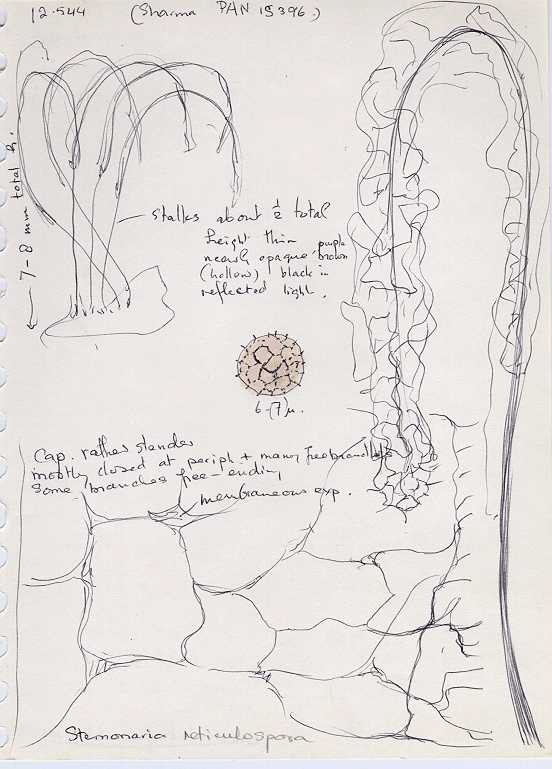 12.544 (Sharma PAN 15396.)
7-8 mm total h.
Stalks about ½ total
height thin purple
nearly opaque brown
(hollow) black in
reflected light.
6-(7)µ.
Cap. rather slender
mostly closed at periph + many free branchlets
Some branches free-ending
membraneous exp.
Stemonaria reticulospora